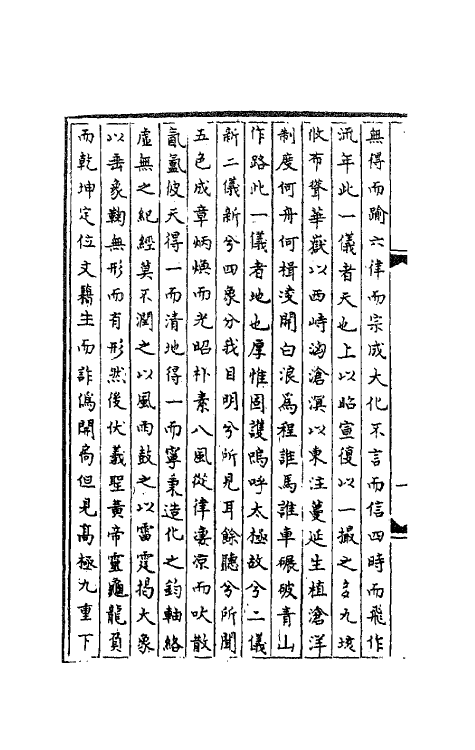 無得而踰六律而宗成大化不言而信四時而飛作
流年此一儀者天也上以昭宣復以一撮之多九垓
攸布聳華嶽以西峙沟滄溟以東注蔓延生植滄洋
制度何舟何楫淩開白浪為程誰馬誰車碾破青山
作路此一儀者地也厚惟固護嗚呼太極故兮二儀
新二儀新兮四象分我目明兮所見耳餘聽兮所聞
五色成章炳煥而光昭朴素八風從律淒凉而吹散
氤氳彼天得一而清地得一而寧秉造化之鈞軸絡
虛無之紀經莫不潤之以風雨鼓之以雷霆揭大象
以垂象鞠無形而有形然後伏羲聖黃帝靈龜龍負
而乾坤定位文籍生而詐偽開扃但見髙極九重下
一